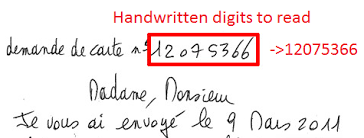 Handwritten digits to read
demande de carte n° 12075366 ->12075366
Madame, Monsieur
Je vous ai envoyé le 9 Mars 2011